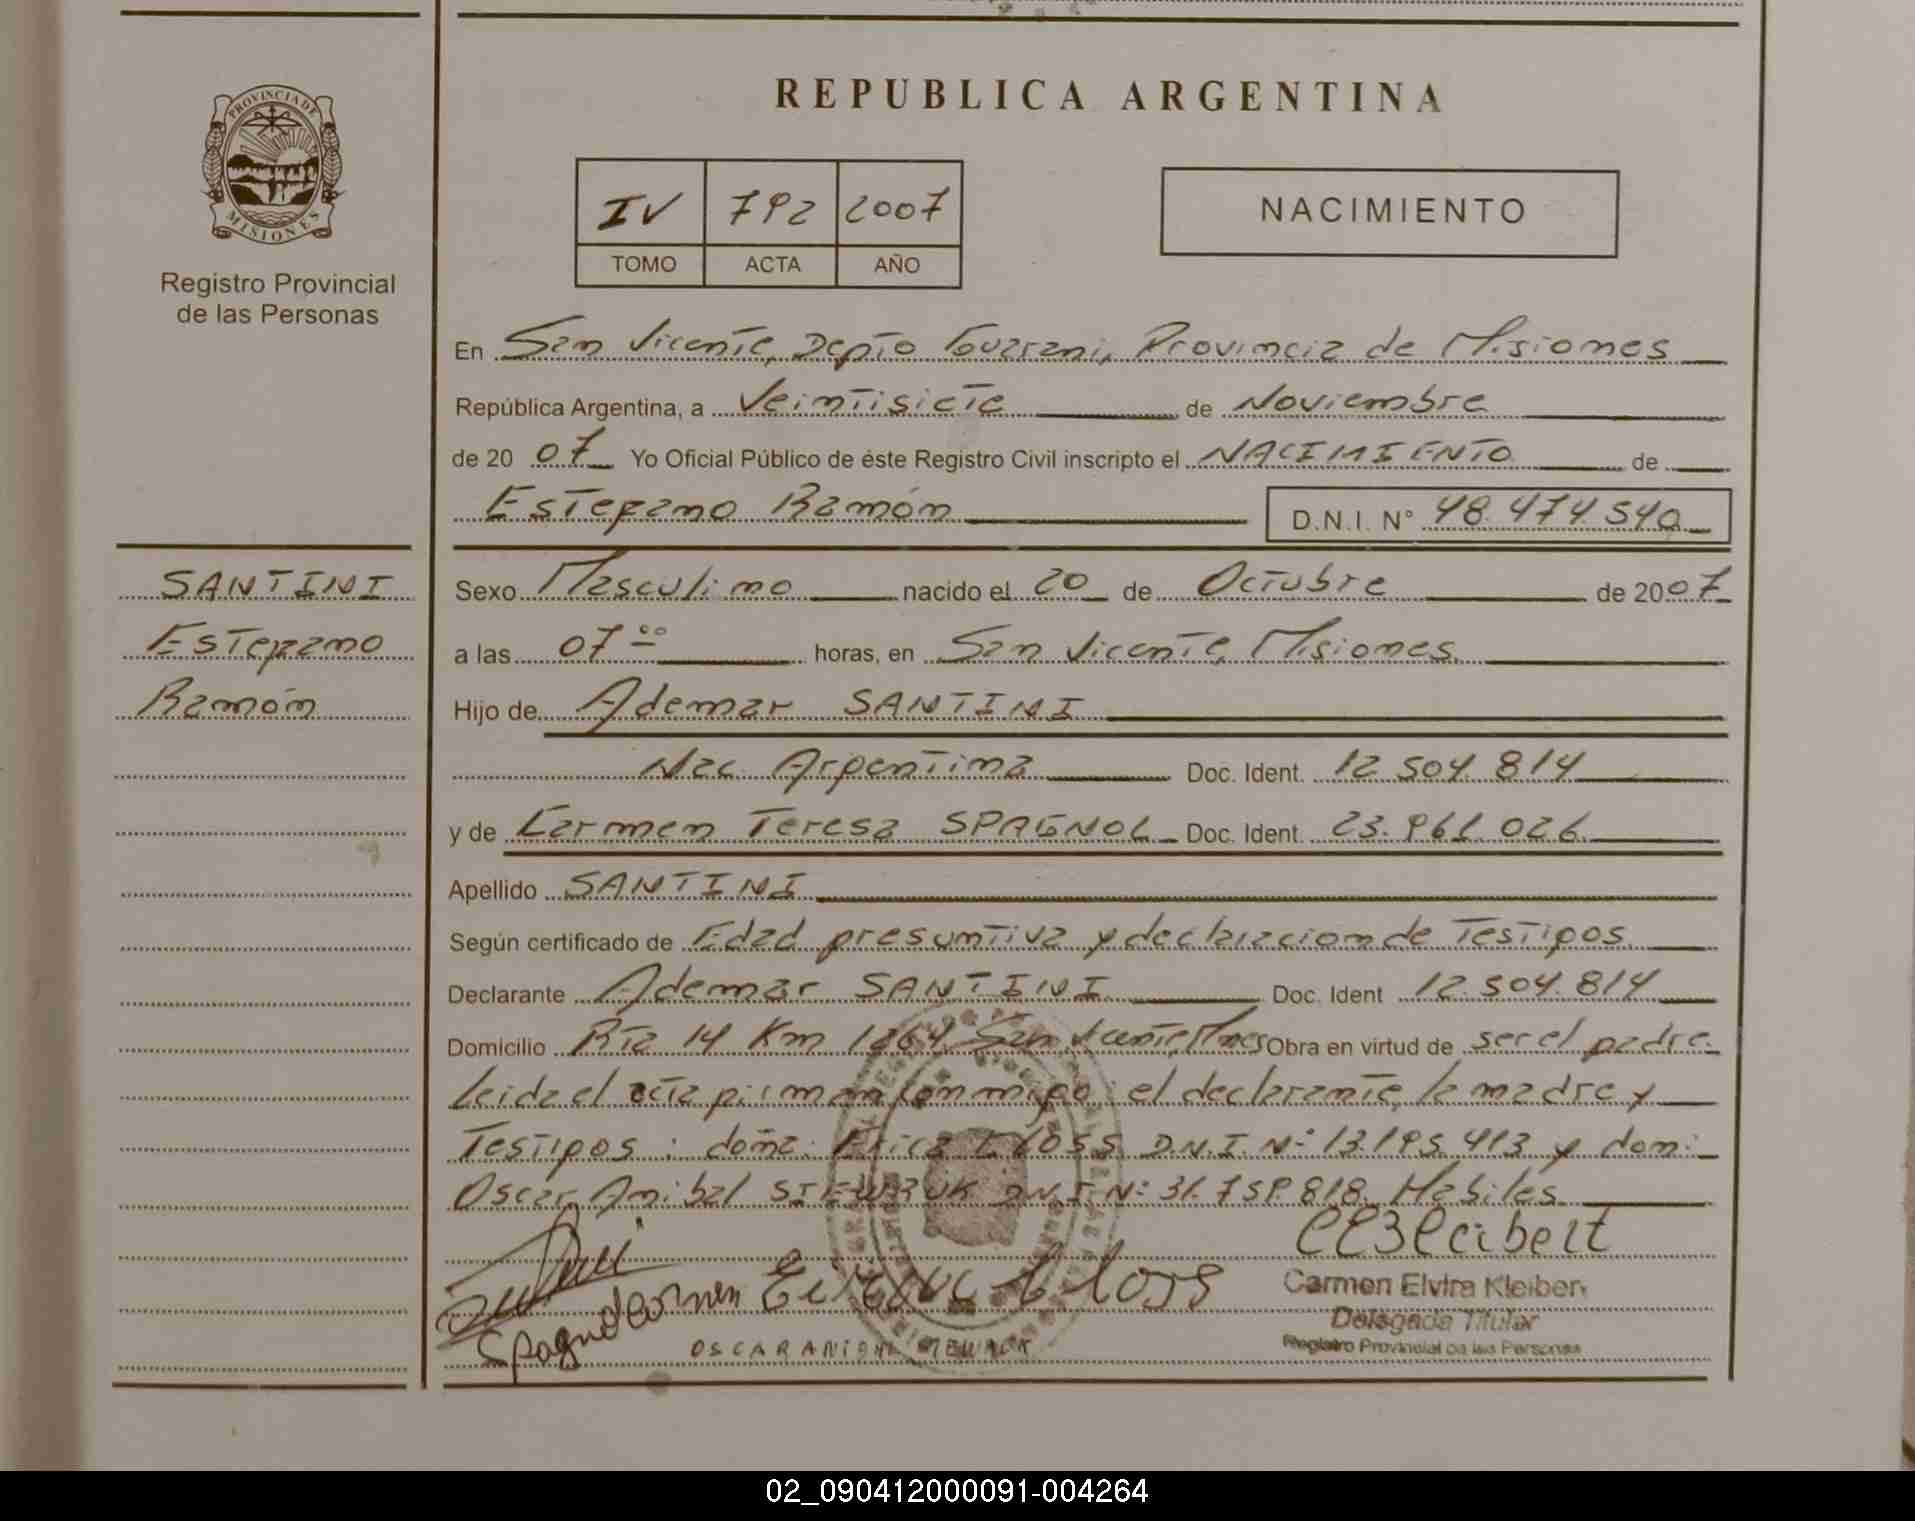 REPUBLICA ARGENTINA
PROVINCIA DE
MISIONES
Registro Provincial
de las Personas
IV 792 2007
TOMO ACTA AÑO
NACIMIENTO
En San Vicente, Depto Guarani, Provincia de Misiones
República Argentina, a Veintisiete de Noviembre
de 20 07 Yo Oficial Público de éste Registro Civil inscripto el NACIMIENTO de
Estefano Ramón D.N.I. N° 48.474.540
SANTINI
Estefano
Ramón
Sexo Masculino nacido el 20 de Octubre de 2007
a las 07 00 horas, en San Vicente, Misiones.
Hijo de Ademar SANTINI
Nac. Argentina Doc. Ident. 12.504.814
y de Carmen Teresa SPAGNOL Doc. Ident. 23.961.026.
Apellido SANTINI
Según certificado de Edad presuntiva y declaracion de Testigos.
Declarante Ademar SANTINI Doc. Ident 12.504.814
Domicilio Rta 14 Km 1264 San Vicente, Mnes Obra en virtud de ser el padre.
Leida el acta firman conmigo: el declarante, la madre y
Testigos: doña: Erica LLOSS D.N.I. N°: 13.195.413 y don:
Oscar Anibal D.N.I. N°: 31.759.818. Habiles.
Spagnol Carmen
OSCAR ANIBAL
Carmen Elvira Kleibert
Delegada Titular
Registro Provincial de las Personas
02_090412000091-004264